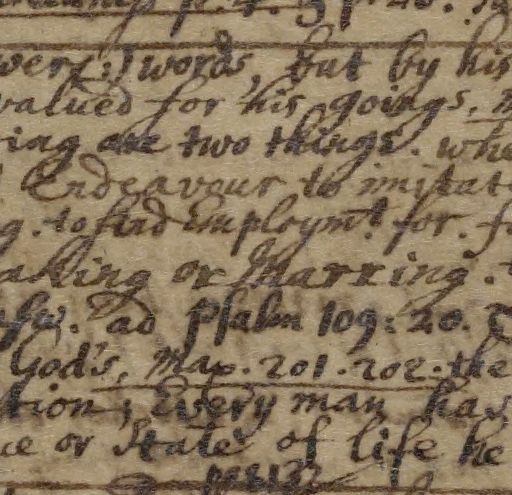 words, but by his
valued for his goings,
ing are two things. whe
Endeavour to imitat
g. to find Employmt. for. f
aking or Marring.
ad Psalm 109: 20.
God's, Max. 201. 202. the
tion, Every man has
ce or State of life he